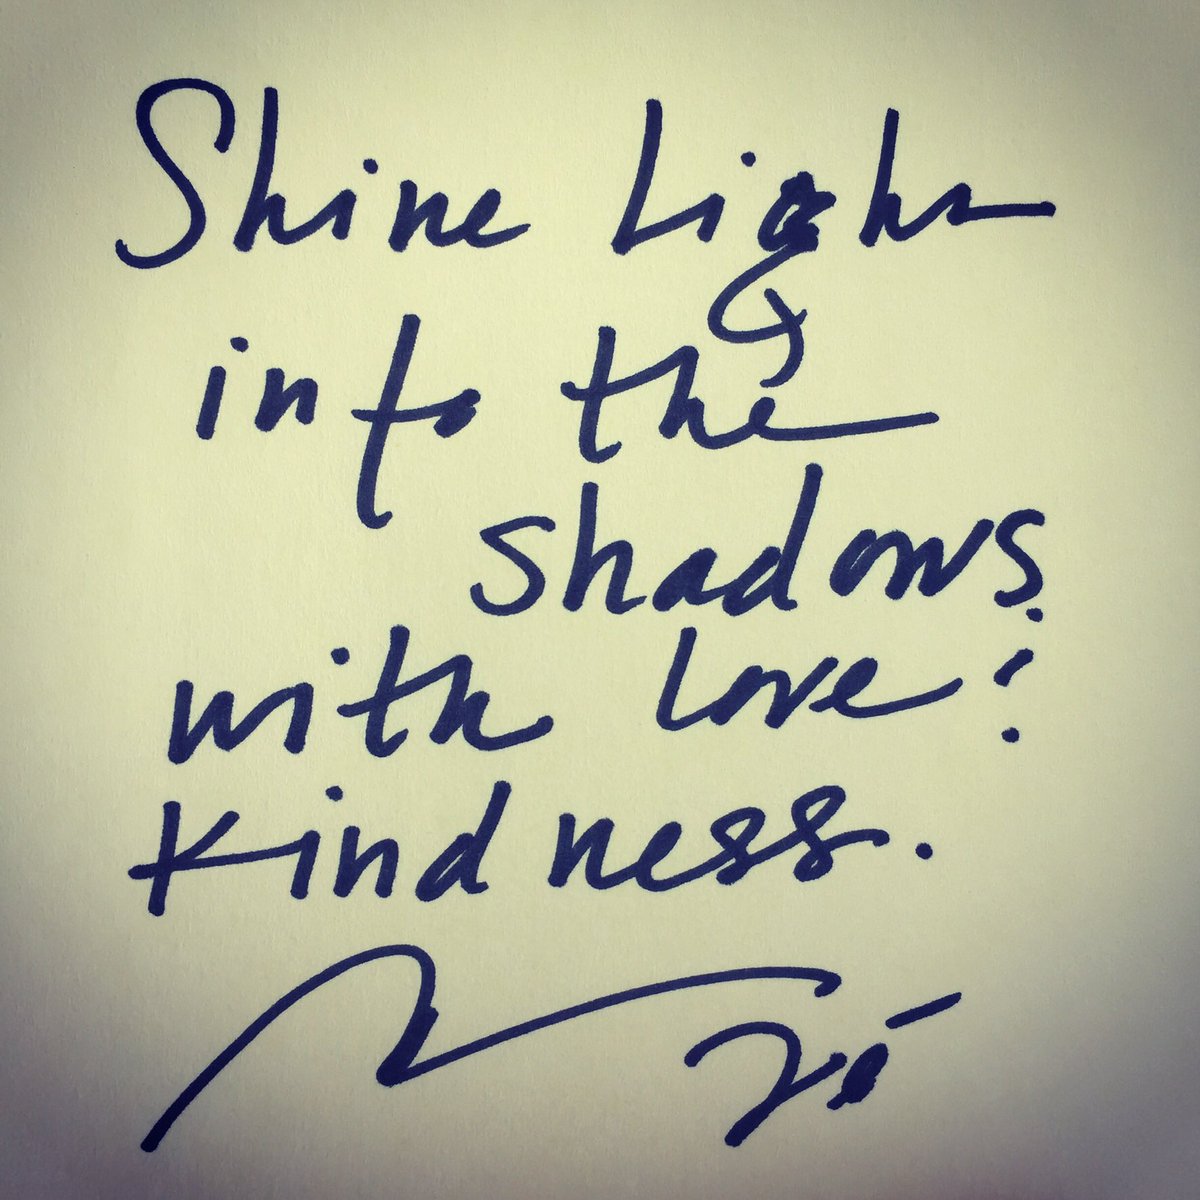 Shine Light
into the
shadows.
with love!
Kindness.